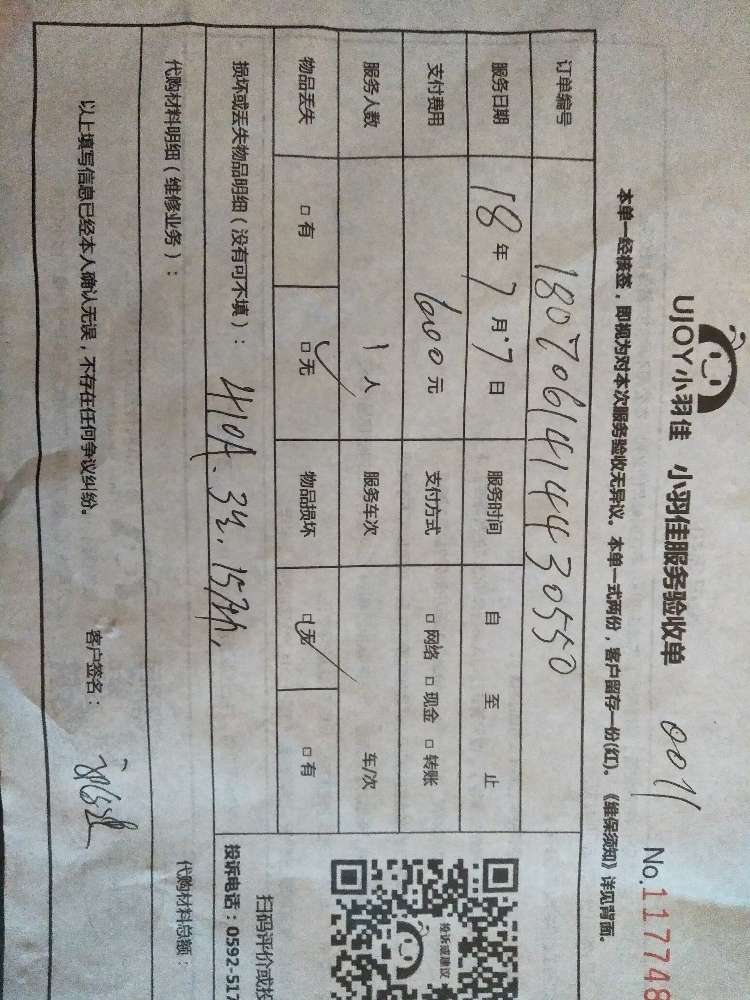 UJOY小羽佳 小羽佳服务验收单 0011
No.117748
本单一经接签，即视为对本次服务验收无异议。本单一式两份，客户留存一份(红)。《维保须知》详见背面。
订单编号 1807061414430550
服务日期 18年7月7日 服务时间 自 至 止
支付费用 600元 支付方式 □网络 □现金 □转账
服务人数 1人 服务车次 车/次
物品丢失 □有 □无 ✓ 物品损坏 □无 ✓ □有
损坏或丢失物品明细（没有可不填）：
代购材料明细（维修业务）：
代购材料总额：
以上填写信息已经本人确认无误，不存在任何争议纠纷。 客户签名：
投诉或建议
扫码评价或投
投诉电话：0592-517